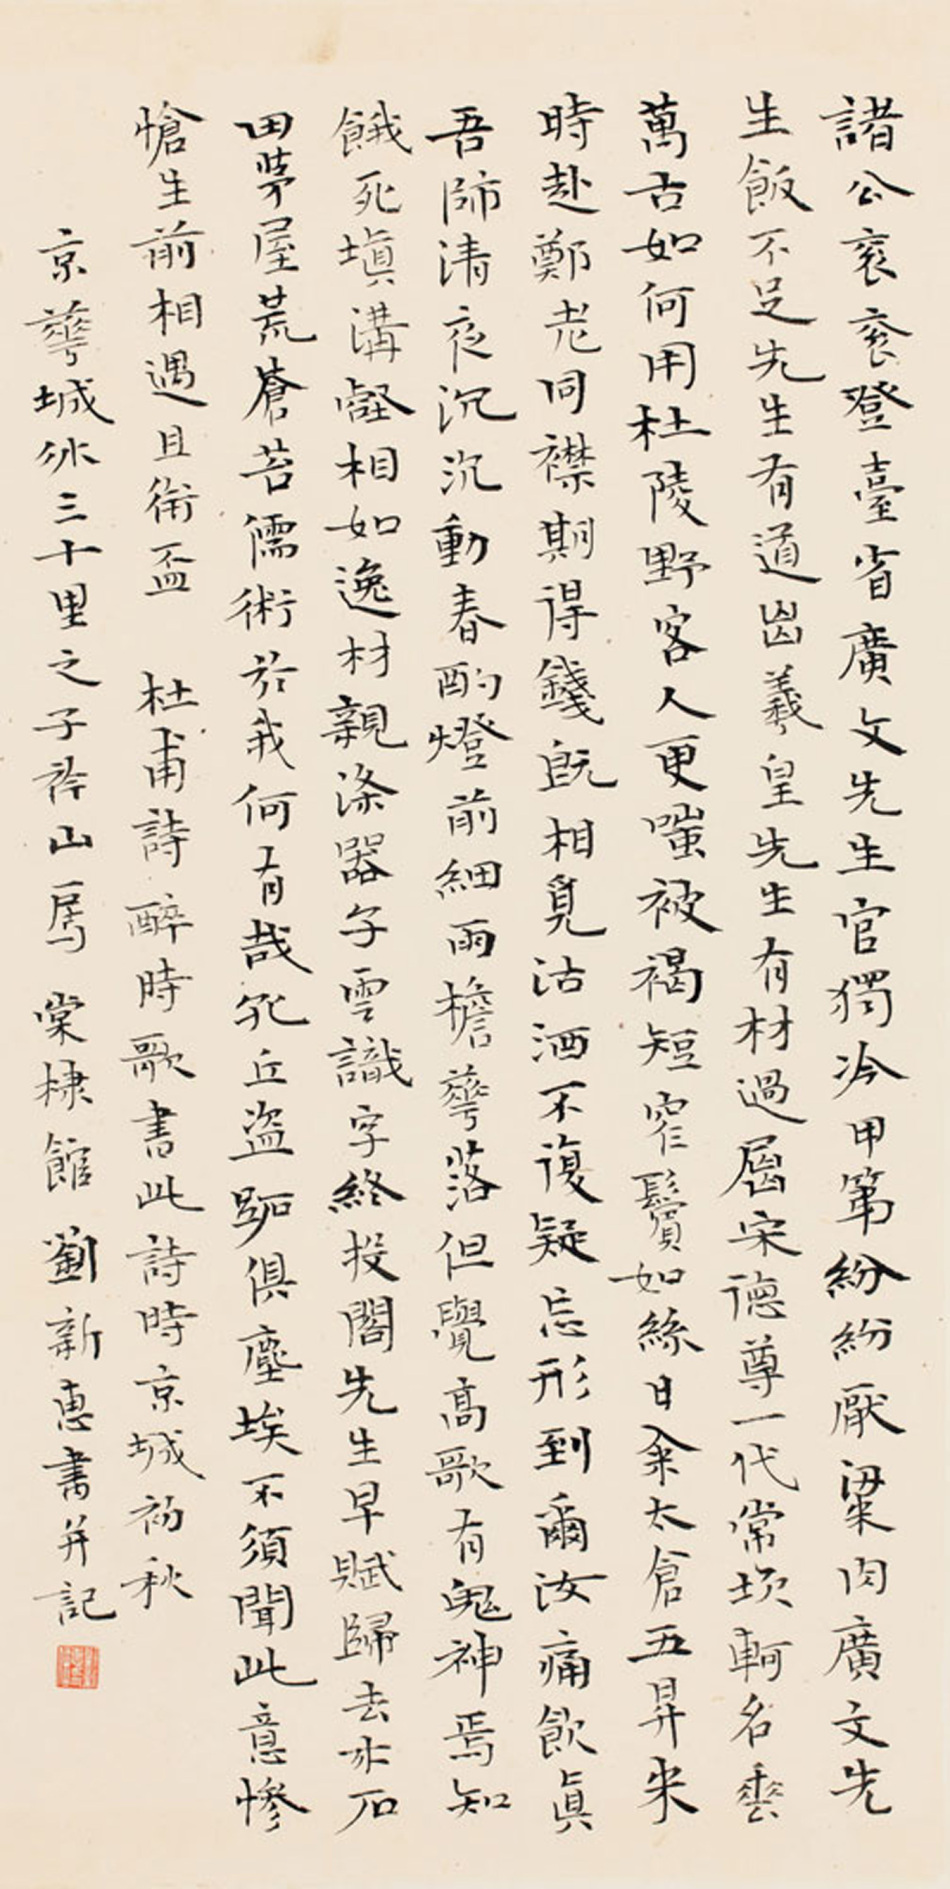 諸公衮衮登臺省廣文先生官獨冷甲第紛紛厭粱肉廣文先
生飯不足先生有道出羲皇先生有材過屈宋德尊一代常坎軻名垂
萬古如何用杜陵野客人更嗤被褐短窄鬢如絲日籴太倉五昇米
時赴鄭老同襟期得錢既相覓沽酒不復疑忘形到爾汝痛飲真
吾師清夜沉沉動春酌燈前細雨檐華落但覺高歌有鬼神焉知
餓死填溝壑相如逸材親滌器子雲識字終投閣先生早賦歸去來石
田茅屋荒蒼苔儒術於我何有哉孔丘盜跖俱塵埃不須聞此意慘
愴生前相遇且銜盃 杜甫詩醉時歌書此詩時京城初秋
京華城北三十里之子衿山房 棠棣館 劉新惠書并記